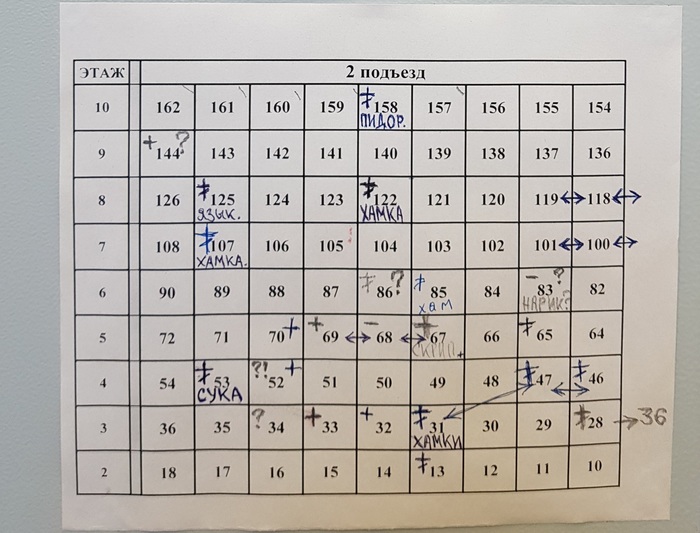 ЭТАЖ 2 подъезд
10 162 161 160 159 158 157 156 155 154
ПИДОР.
9 144? 143 142 141 140 139 138 137 136
8 126 125 124 123 122 121 120 119 118
ЯЗЫК. ХАМКА
7 108 107 106 105 104 103 102 101 100
ХАМКА.
6 90 89 88 87 86? 85 84 83? 82
хам НАРИК?
5 72 71 70+ +69 68 67 66 65 64
4 54 53 ?!52+ 51 50 49 48 47 46
СУКА
3 36 35 ?34 +33 +32 31 30 29 28 → 36
ХАМКИ
2 18 17 16 15 14 13 12 11 10